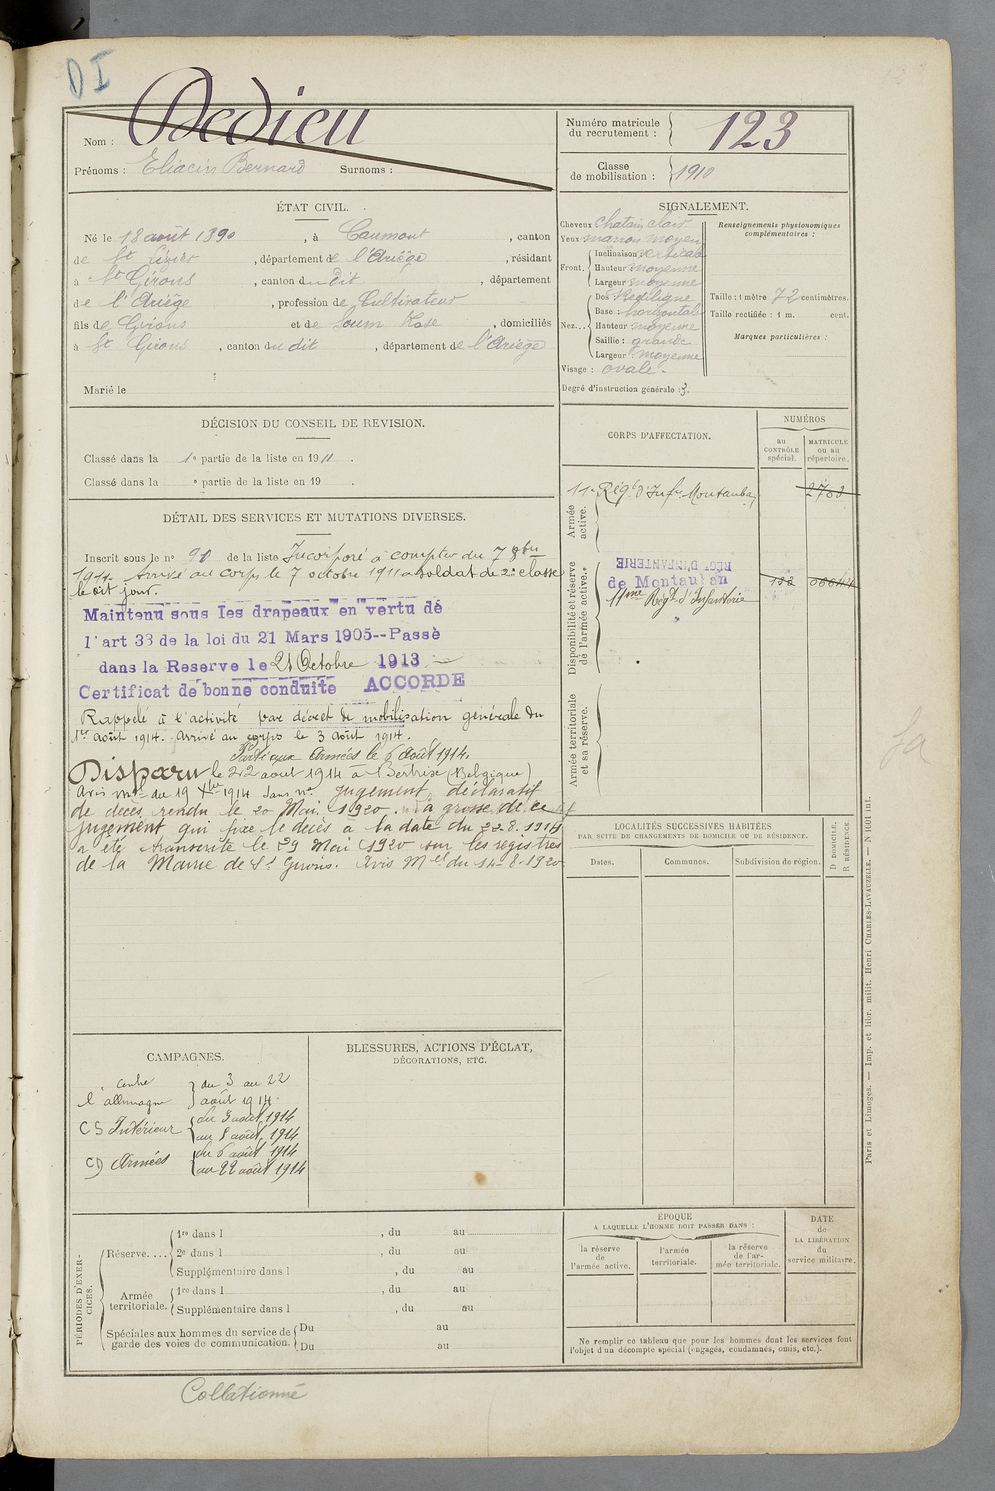 DI
Nom : Dedieu
Prénoms : Eliacin Bernard Surnoms :
Numéro matricule du recrutement : 123
Classe de mobilisation : 1910
ÉTAT CIVIL.
Né le 18 août 1890, à Caumont, canton
de St Lizier, département de l'Ariège, résidant
à St Girons, canton du dit, département
de l'Ariège, profession de Cultivateur
fils de Girons et de Soum Rose, domiciliés
à St Girons, canton du dit, département de l'Ariège
Marié le
SIGNALEMENT.
Cheveux chatain clair
Yeux marron moyen
Front. Inclinaison verticale
Hauteur moyenne
Largeur moyenne
Nez... Dos : Rectiligne
Base : horizontale
Hauteur moyenne
Saillie : grande
Largeur : moyenne
Visage : ovale.
Degré d'instruction générale : 3.
Renseignements physionomiques complémentaires :
Taille : 1 mètre 72 centimètres.
Taille rectifiée : 1 m. cent.
Marques particulières :
DÉCISION DU CONSEIL DE REVISION.
Classé dans la 1e partie de la liste en 1911.
Classé dans la e partie de la liste en 19 .
DÉTAIL DES SERVICES ET MUTATIONS DIVERSES.
Inscrit sous le n° 90 de la liste Incorporé à compter du 7 8bre
1911. Arrivé au corps le 7 octobre 1911 soldat de 2e classe
le dit jour.
Maintenu sous les drapeaux en vertu de
l'art 33 de la loi du 21 Mars 1905--Passè
dans la Reserve le 21 Octobre 1913
Certificat de bonne conduite ACCORDE
Rappelé à l'activité par décret de mobilisation générale du
1er août 1914. Arrivé au corps le 3 août 1914.
Parti aux Armées le 6 août 1914.
Disparu le 22 août 1914 à Bertrix (Belgique)
Avis Mel du 19 Xbre 1914 sans no. Jugement déclaratif
de décès rendu le 20 Mai 1920. La grosse de ce
jugement qui fixe le décès à la date du 22.8.1914
a été transcrite le 29 Mai 1920 sur les registres
de la Mairie de St Girons. Avis Mel du 14-8-1920
CORPS D'AFFECTATION.
NUMÉROS
AU CONTRÔLE spécial.
MATRICULE ou au répertoire.
Armée active.
11e Régt d'Infie Montauban 2763
Disponibilité et réserve de l'armée active.
RÉGT D'INFANTERIE
de Montauban
11ème Régt d'Infanterie
Armée territoriale et sa réserve.
LOCALITÉS SUCCESSIVES HABITÉES
PAR SUITE DE CHANGEMENTS DE DOMICILE OU DE RÉSIDENCE.
Dates.
Communes.
Subdivision de région.
D DOMICILE.
R RÉSIDENCE.
CAMPAGNES.
contre l'allemagne du 3 au 22 août 1914.
CS Intérieur du 3 août 1914
au 5 août 1914
CD Armées du 6 août 1914
au 22 août 1914
BLESSURES, ACTIONS D'ÉCLAT,
DÉCORATIONS, ETC.
PÉRIODES D'EXERCICES.
Réserve.... 1re dans l , du au
2e dans l , du au
Supplémentaire dans l , du au
Armée territoriale. 1re dans l , du au
Supplémentaire dans l , du au
Spéciales aux hommes du service de garde des voies de communication. Du au
Du au
ÉPOQUE
A LAQUELLE L'HOMME DOIT PASSER DANS :
la réserve de l'armée active.
l'armée territoriale.
la réserve de l'armée territoriale.
DATE de LA LIBÉRATION du service militaire.
Ne remplir ce tableau que pour les hommes dont les services font
l'objet d'un décompte spécial (engagés, condamnés, omis, etc.).
Paris et Limoges. — Imp. et libr. milit. Henri CHARLES-LAVAUZELLE. — N 1001 int.
Collationné